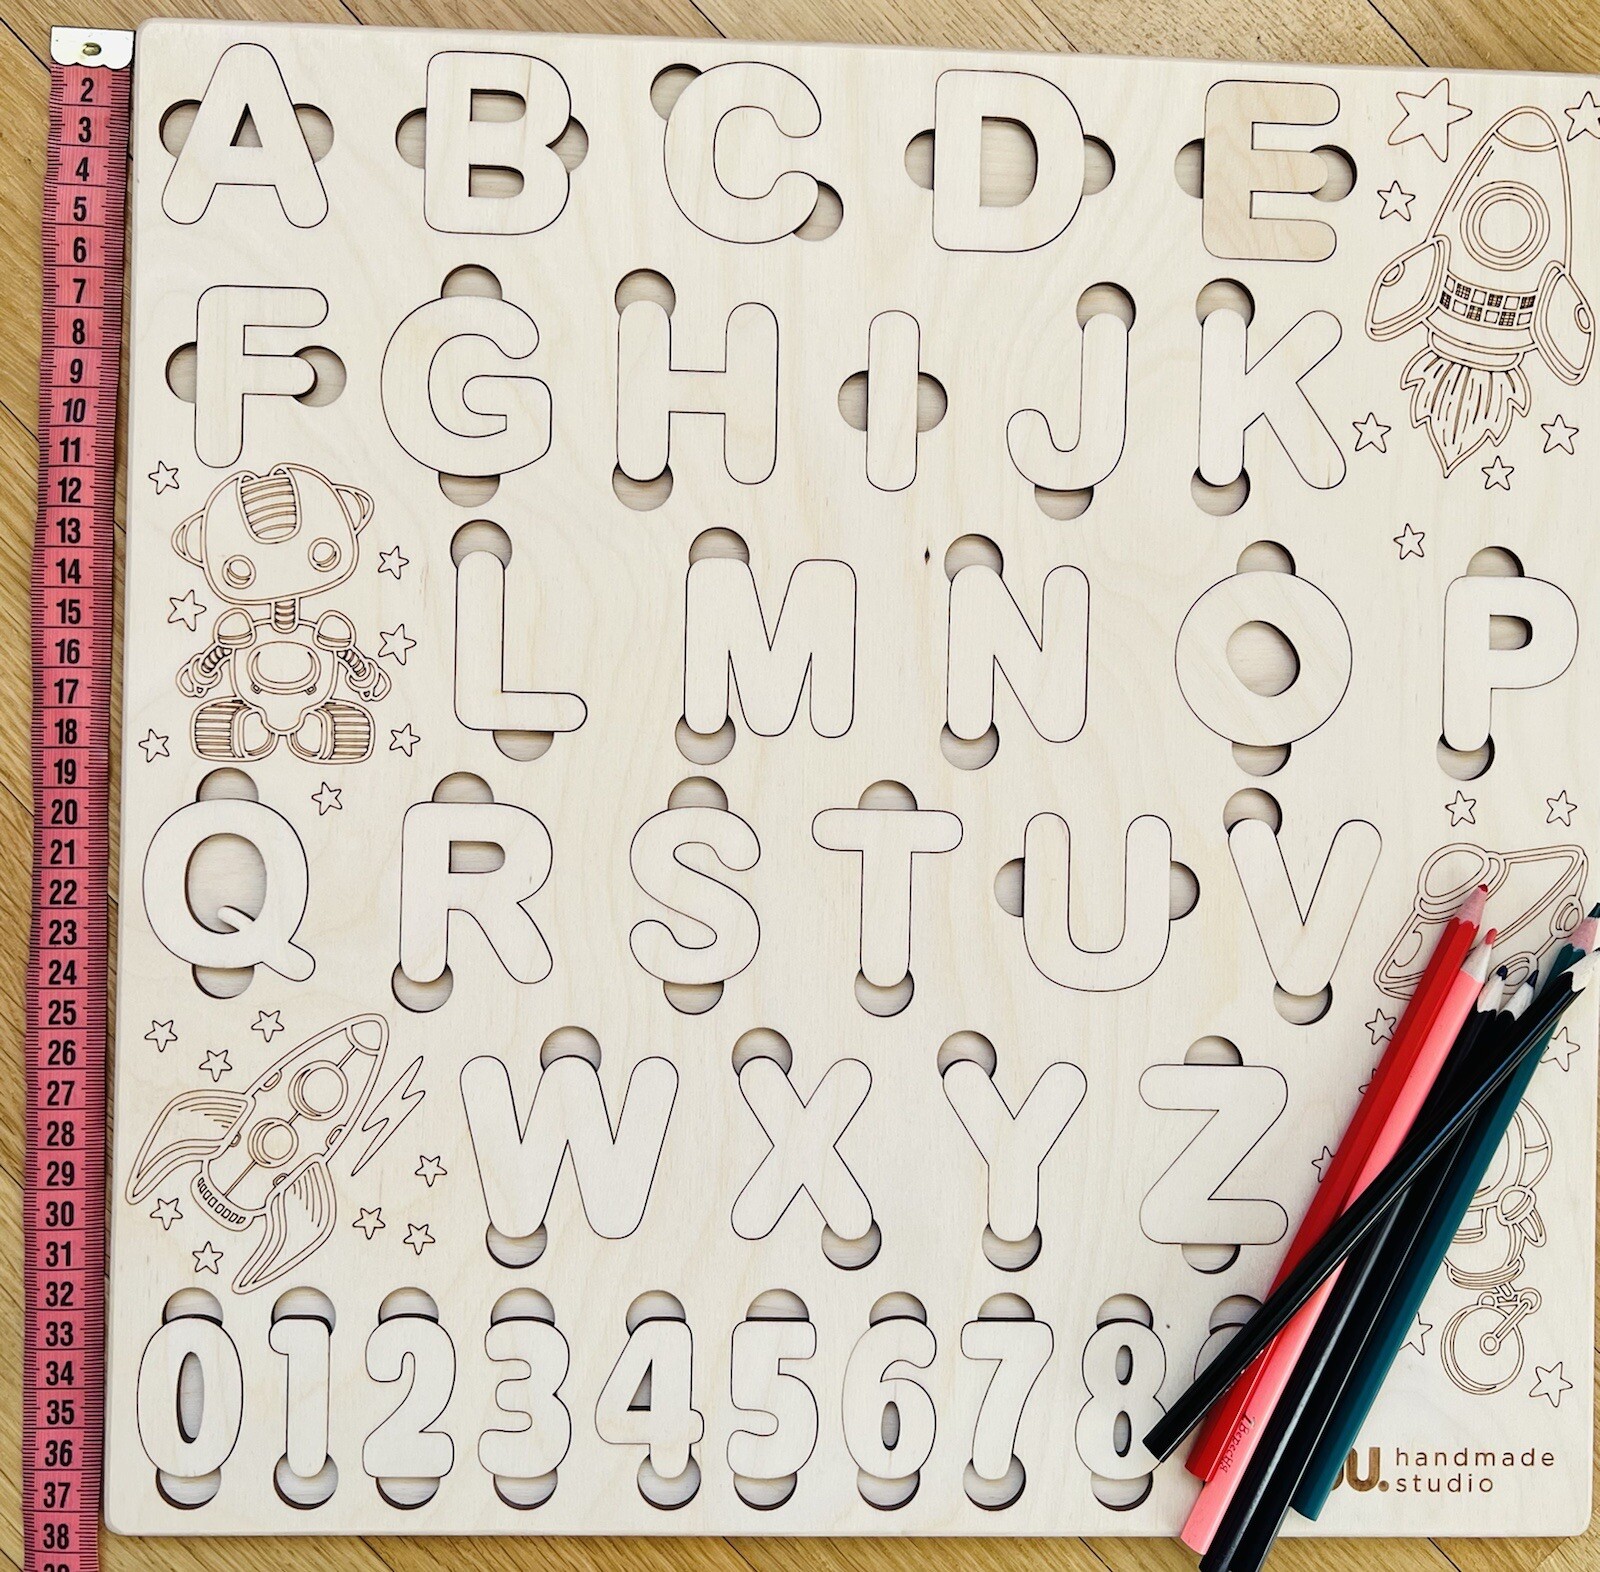 A B C D E
F G H I J K
L M N O P
Q R S T U V
W X Y Z
0 1 2 3 4 5 6 7 8
handmade
studio
2
3
4
5
6
7
8
9
10
11
12
13
14
15
16
17
18
19
20
21
22
23
24
25
26
27
28
29
30
31
32
33
34
35
36
37
38